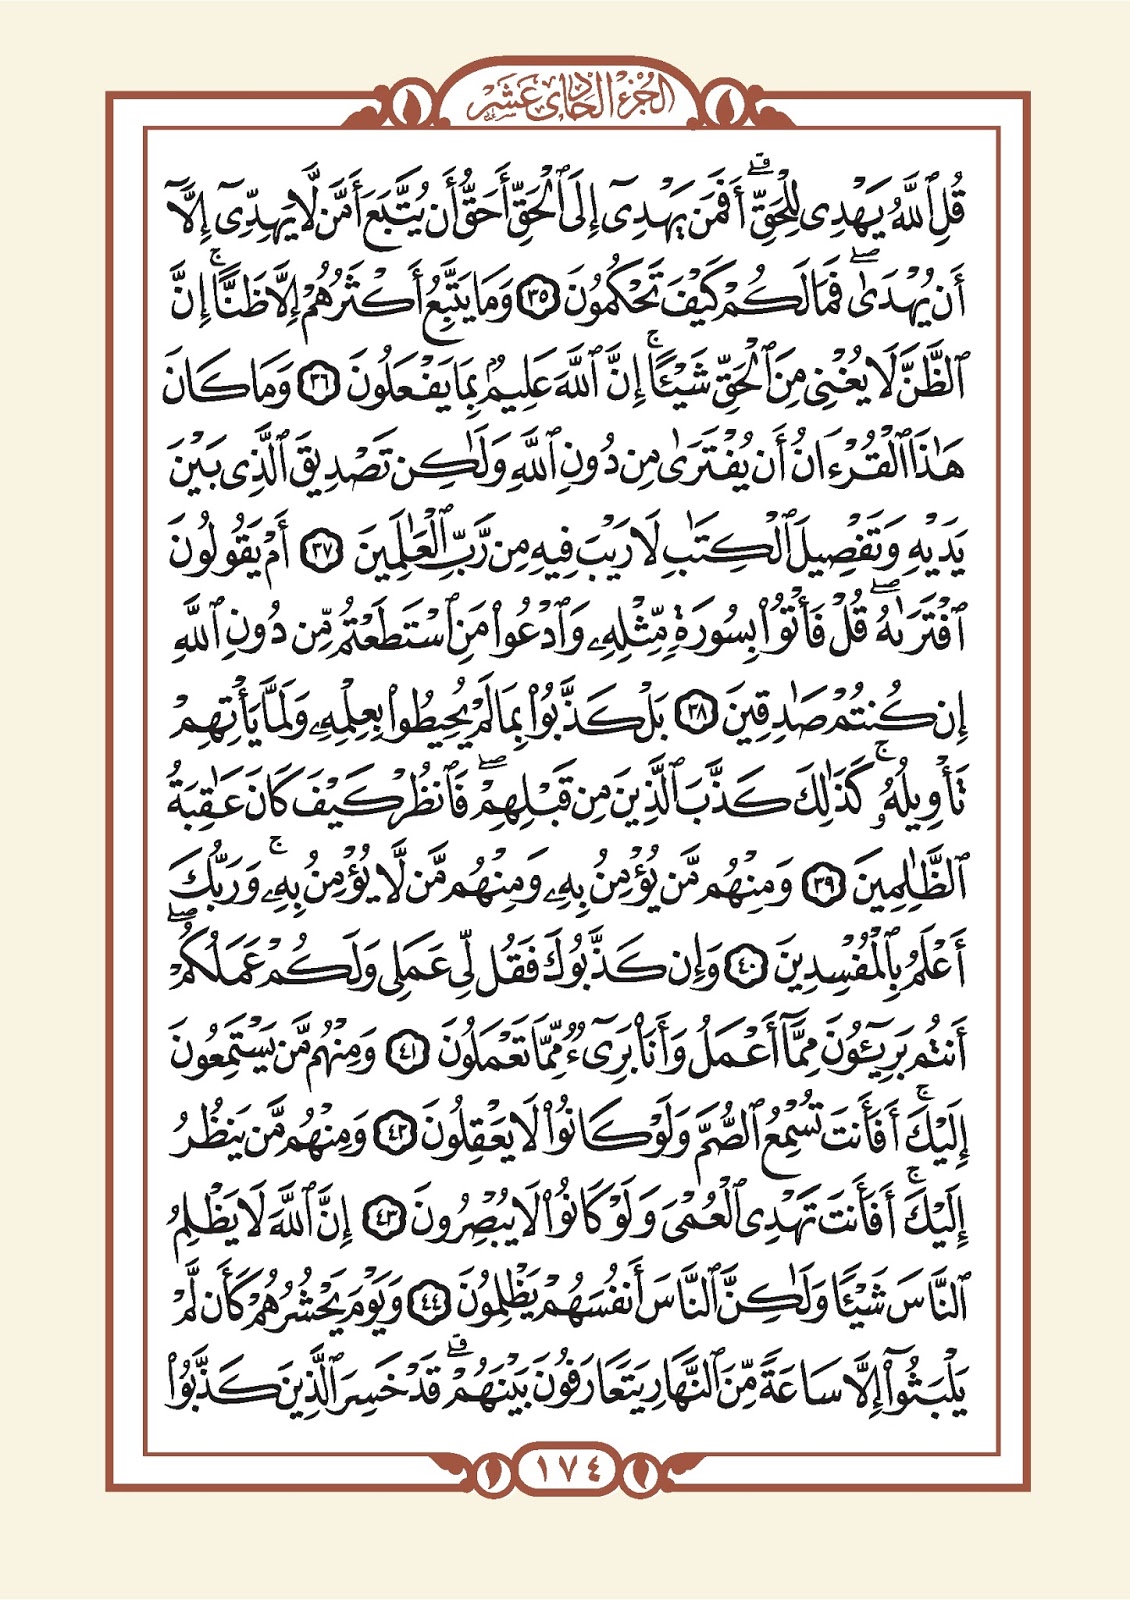 الجزء الحادي عشر
قُلِ ٱللَّهُ يَهْدِى لِلْحَقِّ ۗ أَفَمَن يَهْدِىٓ إِلَى ٱلْحَقِّ أَحَقُّ أَن يُتَّبَعَ أَمَّن لَّا يَهِدِّىٓ إِلَّآ
أَن يُهْدَىٰ ۖ فَمَا لَكُمْ كَيْفَ تَحْكُمُونَ ٣٥ وَمَا يَتَّبِعُ أَكْثَرُهُمْ إِلَّا ظَنًّا ۚ إِنَّ
ٱلظَّنَّ لَا يُغْنِى مِنَ ٱلْحَقِّ شَيْـًٔا ۚ إِنَّ ٱللَّهَ عَلِيمٌۢ بِمَا يَفْعَلُونَ ٣٦ وَمَا كَانَ
هَٰذَا ٱلْقُرْءَانُ أَن يُفْتَرَىٰ مِن دُونِ ٱللَّهِ وَلَٰكِن تَصْدِيقَ ٱلَّذِى بَيْنَ
يَدَيْهِ وَتَفْصِيلَ ٱلْكِتَٰبِ لَا رَيْبَ فِيهِ مِن رَّبِّ ٱلْعَٰلَمِينَ ٣٧ أَمْ يَقُولُونَ
ٱفْتَرَىٰهُ ۖ قُلْ فَأْتُوا۟ بِسُورَةٍ مِّثْلِهِۦ وَٱدْعُوا۟ مَنِ ٱسْتَطَعْتُم مِّن دُونِ ٱللَّهِ
إِن كُنتُمْ صَٰدِقِينَ ٣٨ بَلْ كَذَّبُوا۟ بِمَا لَمْ يُحِيطُوا۟ بِعِلْمِهِۦ وَلَمَّا يَأْتِهِمْ
تَأْوِيلُهُۥ ۚ كَذَٰلِكَ كَذَّبَ ٱلَّذِينَ مِن قَبْلِهِمْ ۖ فَٱنظُرْ كَيْفَ كَانَ عَٰقِبَةُ
ٱلظَّٰلِمِينَ ٣٩ وَمِنْهُم مَّن يُؤْمِنُ بِهِۦ وَمِنْهُم مَّن لَّا يُؤْمِنُ بِهِۦ ۚ وَرَبُّكَ
أَعْلَمُ بِٱلْمُفْسِدِينَ ٤٠ وَإِن كَذَّبُوكَ فَقُل لِّى عَمَلِى وَلَكُمْ عَمَلُكُمْ ۖ
أَنتُم بَرِيٓـُٔونَ مِمَّآ أَعْمَلُ وَأَنَا۠ بَرِىٓءٌ مِّمَّا تَعْمَلُونَ ٤١ وَمِنْهُم مَّن يَسْتَمِعُونَ
إِلَيْكَ ۚ أَفَأَنتَ تُسْمِعُ ٱلصُّمَّ وَلَوْ كَانُوا۟ لَا يَعْقِلُونَ ٤٢ وَمِنْهُم مَّن يَنظُرُ
إِلَيْكَ ۚ أَفَأَنتَ تَهْدِى ٱلْعُمْىَ وَلَوْ كَانُوا۟ لَا يُبْصِرُونَ ٤٣ إِنَّ ٱللَّهَ لَا يَظْلِمُ
ٱلنَّاسَ شَيْـًٔا وَلَٰكِنَّ ٱلنَّاسَ أَنفُسَهُمْ يَظْلِمُونَ ٤٤ وَيَوْمَ يَحْشُرُهُمْ كَأَن لَّمْ
يَلْبَثُوٓا۟ إِلَّا سَاعَةً مِّنَ ٱلنَّهَارِ يَتَعَارَفُونَ بَيْنَهُمْ ۗ قَدْ خَسِرَ ٱلَّذِينَ كَذَّبُوا۟
١٧٤